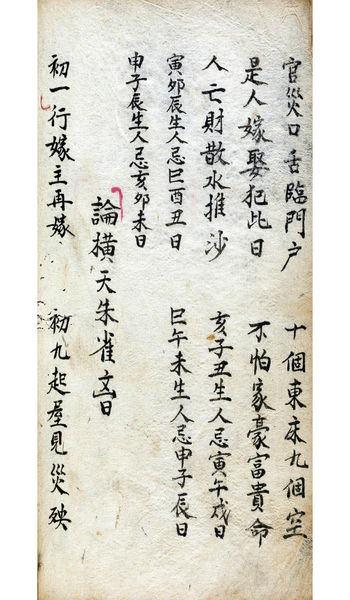 官災口舌臨門户　十個東床九個空
是人嫁娶犯此日　不怕家豪富貴命
人亡財散水推沙　亥子丑生人忌寅午戌日
寅卯辰生人忌巳酉丑日　巳午未生人忌申子辰日
申子辰生人忌亥卯未日
論橫天朱雀㐫日
初一行嫁主再嫁　初九起屋見災殃